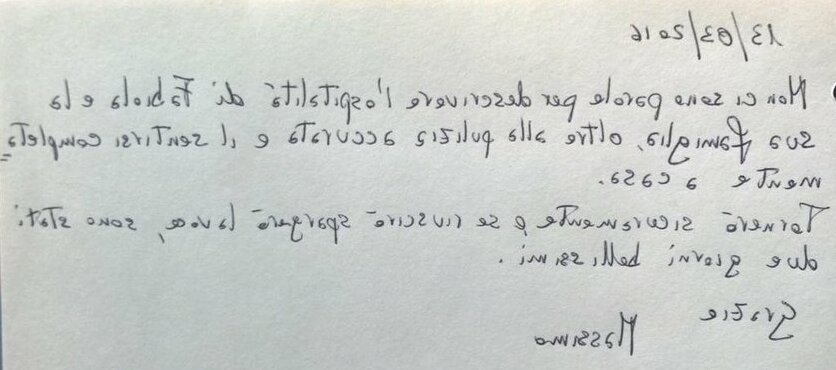 13/03/2016
Non ci sono parole per descrivere l'ospitalità di Fabiola e la
sua famiglia, oltre alla pulizia accurata e il sentirsi completa=
mente a casa.
Tornerò sicuramente e se riuscirò spargerò la voce, sono stati
due giorni bellissimi.
Grazie
Massimo